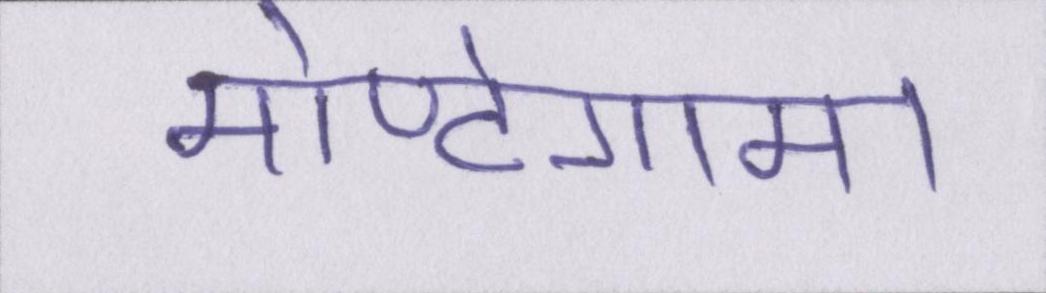 मोण्टेगामा